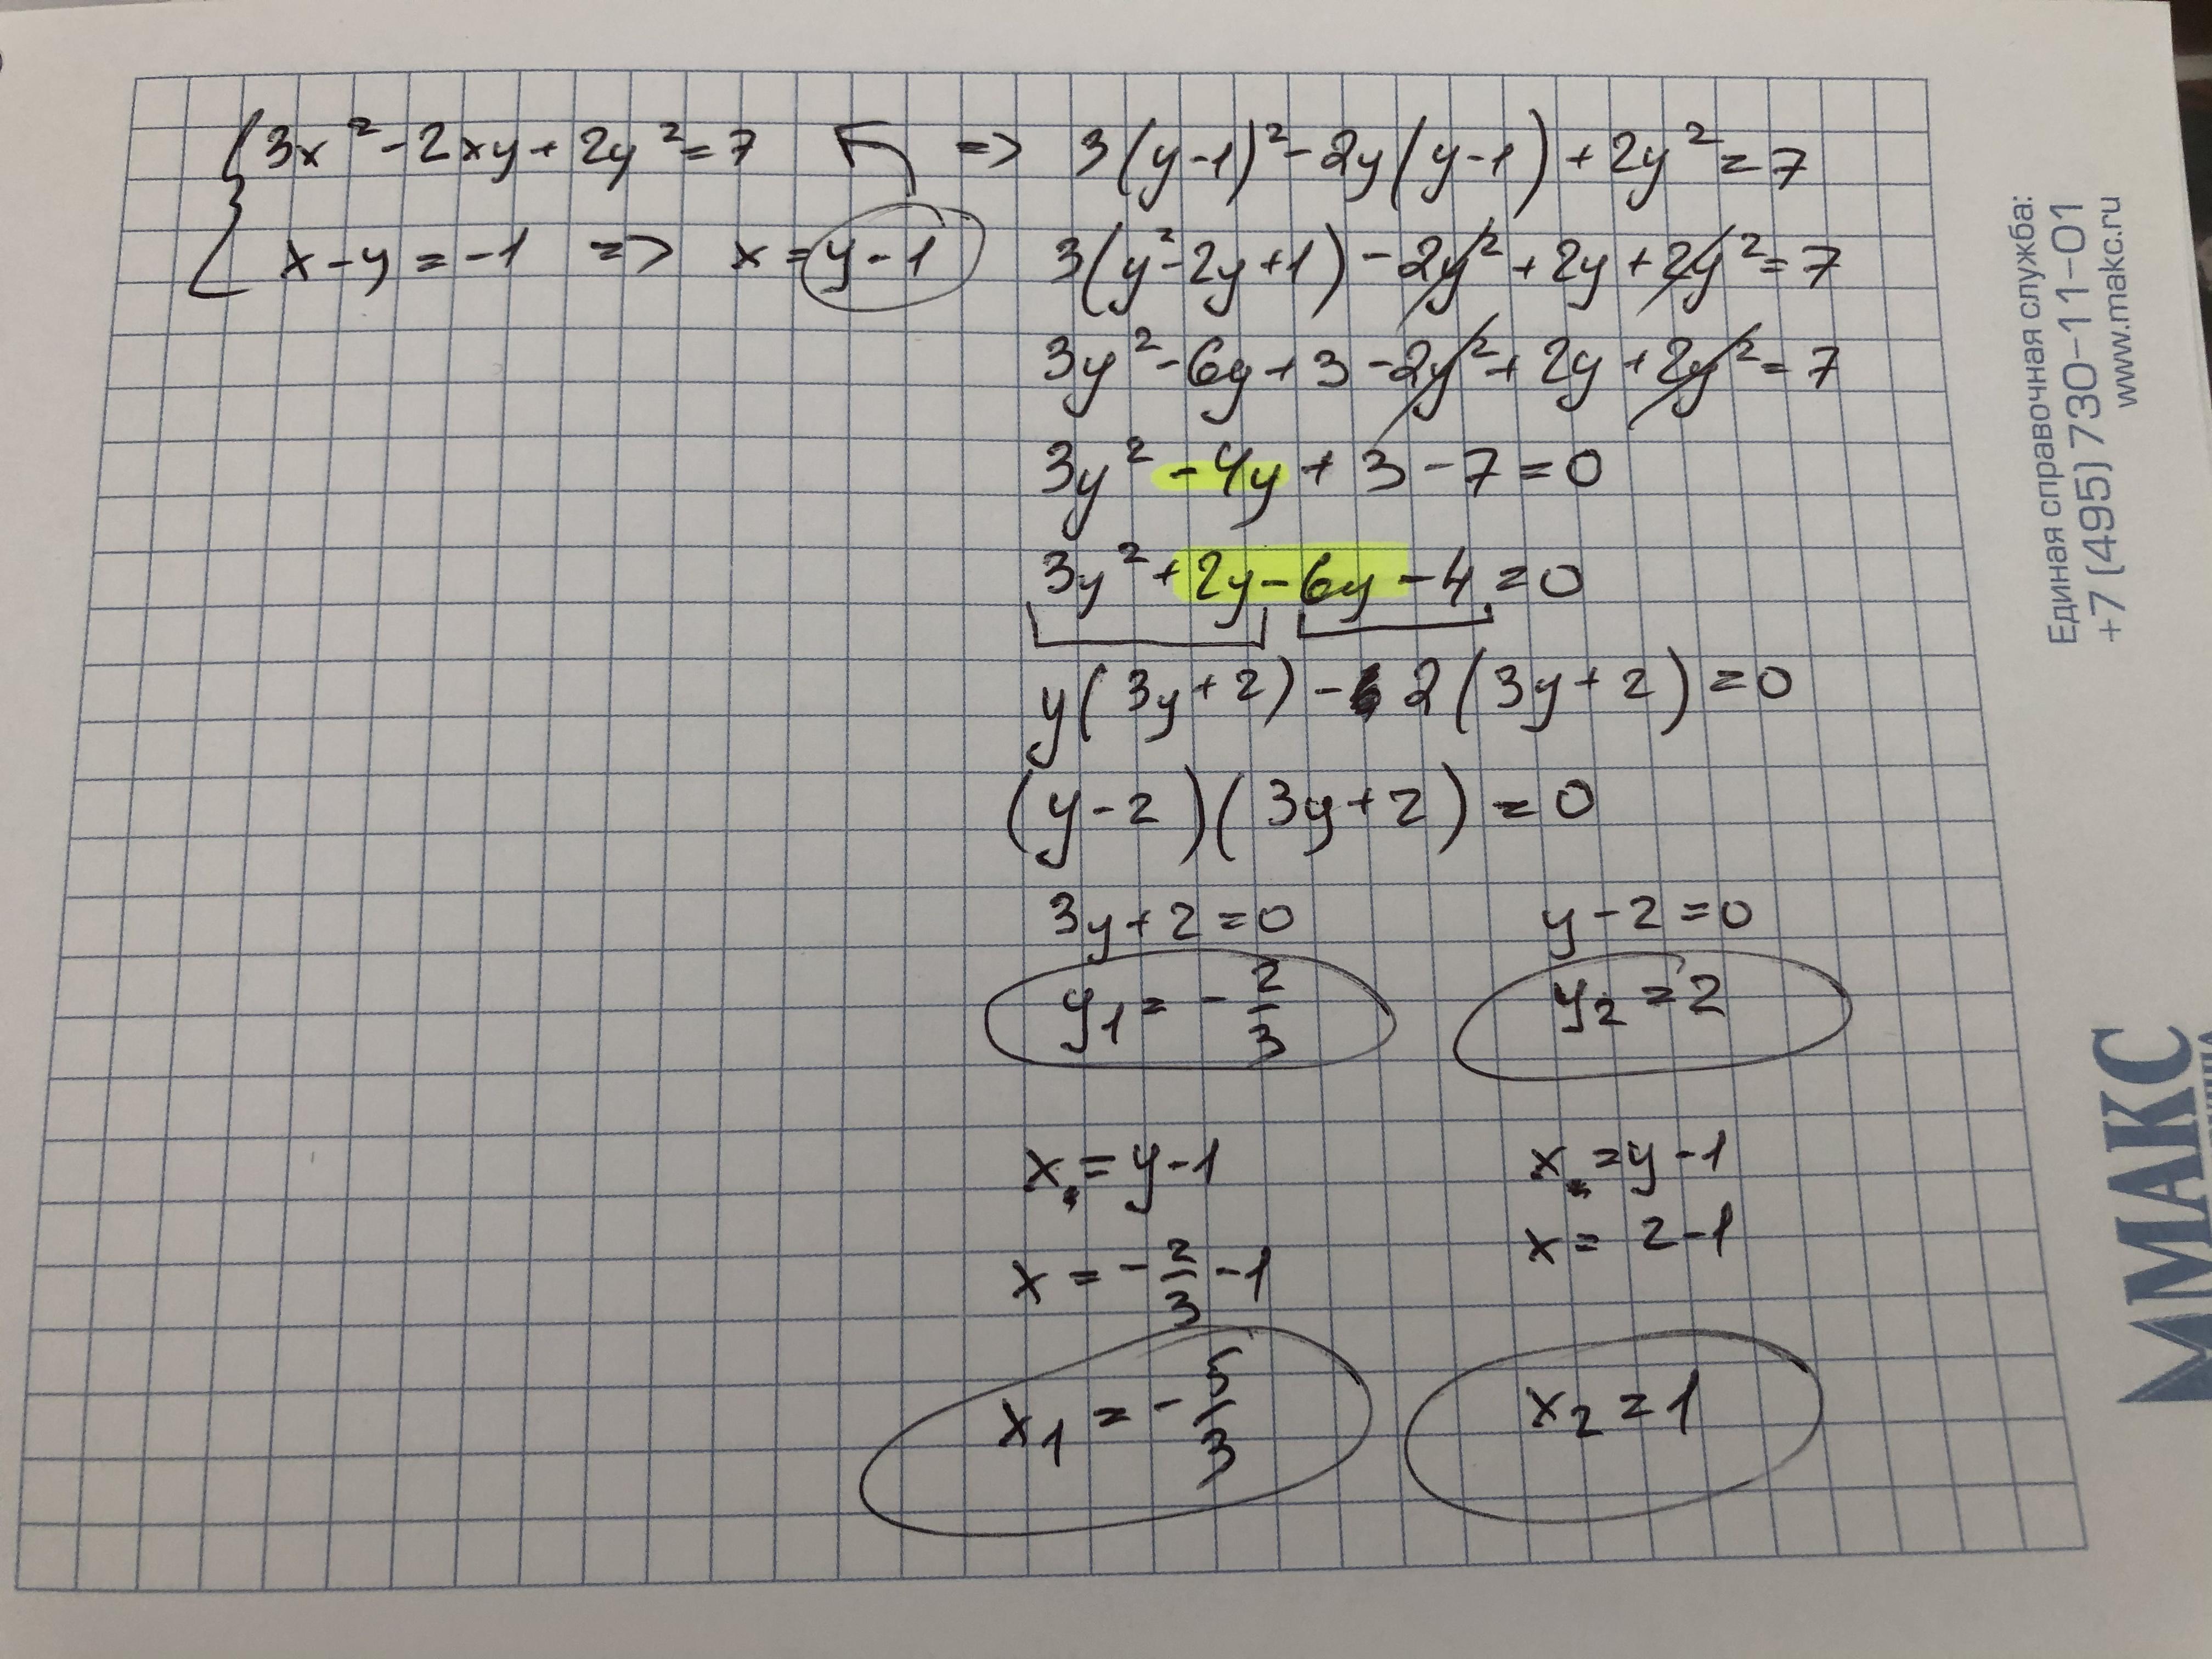 3x² - 2xy + 2y² = 7 => 3(y-1)² - 2y(y-1) + 2y² = 7
x - y = -1 => x = y - 1
3(y² - 2y + 1) - 2y² + 2y + 2y² = 7
3y² - 6y + 3 - 2y² + 2y + 2y² = 7
3y² - 4y + 3 - 7 = 0
3y² + 2y - 6y - 4 = 0
y(3y + 2) - 2(3y + 2) = 0
(y - 2)(3y + 2) = 0
3y + 2 = 0
y₁ = - 2/3
x = y - 1
x = - 2/3 - 1
x₁ = - 5/3
y - 2 = 0
y₂ = 2
x = y - 1
x = 2 - 1
x₂ = 1
Единая справочная служба:
+7 (495) 730-11-01
www.makc.ru
МАКС